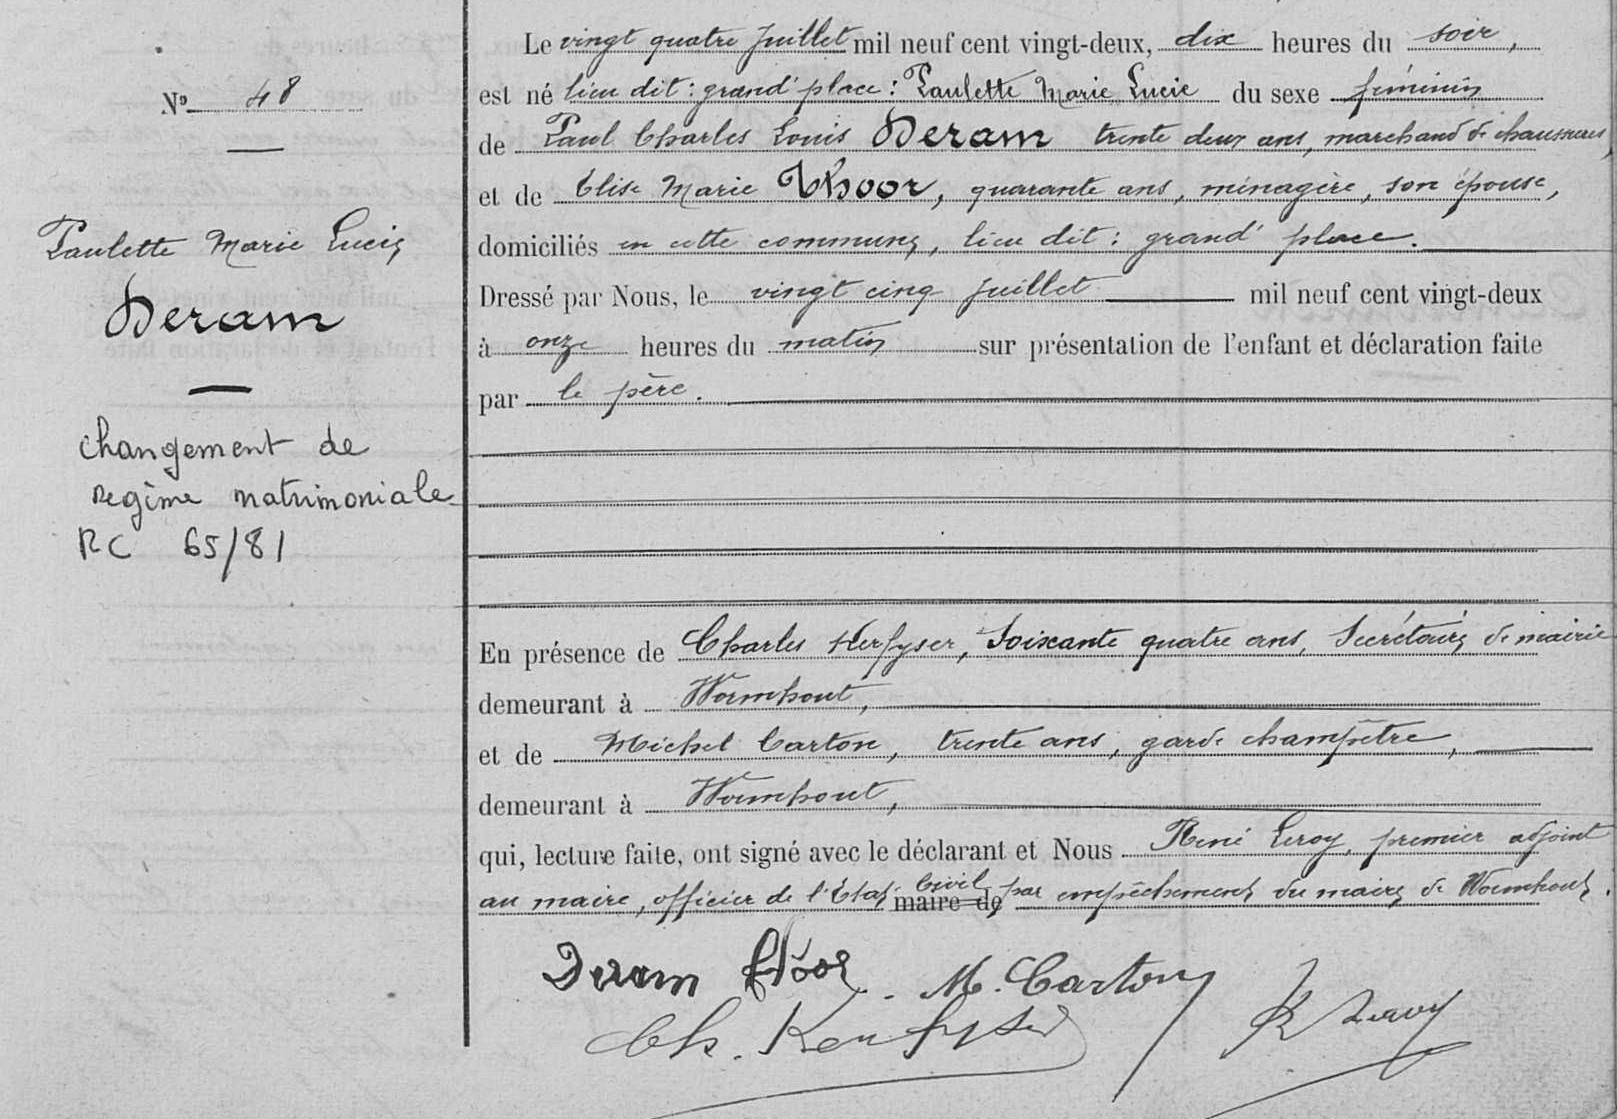 Nº 48
Paulette Marie Lucie
Deram
changement de
regime matrimoniale
RC 65/81
Le vingt quatre Juillet mil neuf cent vingt-deux, dix heures du soir,
est né lieu dit : grand'place : Paulette Marie Lucie du sexe féminin
de Paul Charles Louis Deram trente deux ans, marchand de chaussures,
et de Elise Marie Thoor, quarante ans, ménagère, son épouse,
domiciliés en cette commune, lieu dit : grand' place.
Dressé par Nous, le vingt cinq Juillet mil neuf cent vingt-deux
à onze heures du matin sur présentation de l'enfant et déclaration faite
par le père.
En présence de Charles Kerfyser, Soixante quatre ans, Secrétaire de mairie
demeurant à Wormhout,
et de Michel Carton, trente ans, garde champêtre,
demeurant à Wormhout,
qui, lecture faite, ont signé avec le déclarant et Nous René Leroy, premier adjoint
au maire, officier de l'Etat Civil maire de par empêchement du maire de Wormhout.
Deram Thoor M. Carton
Ch. Kerfyser R Leroy